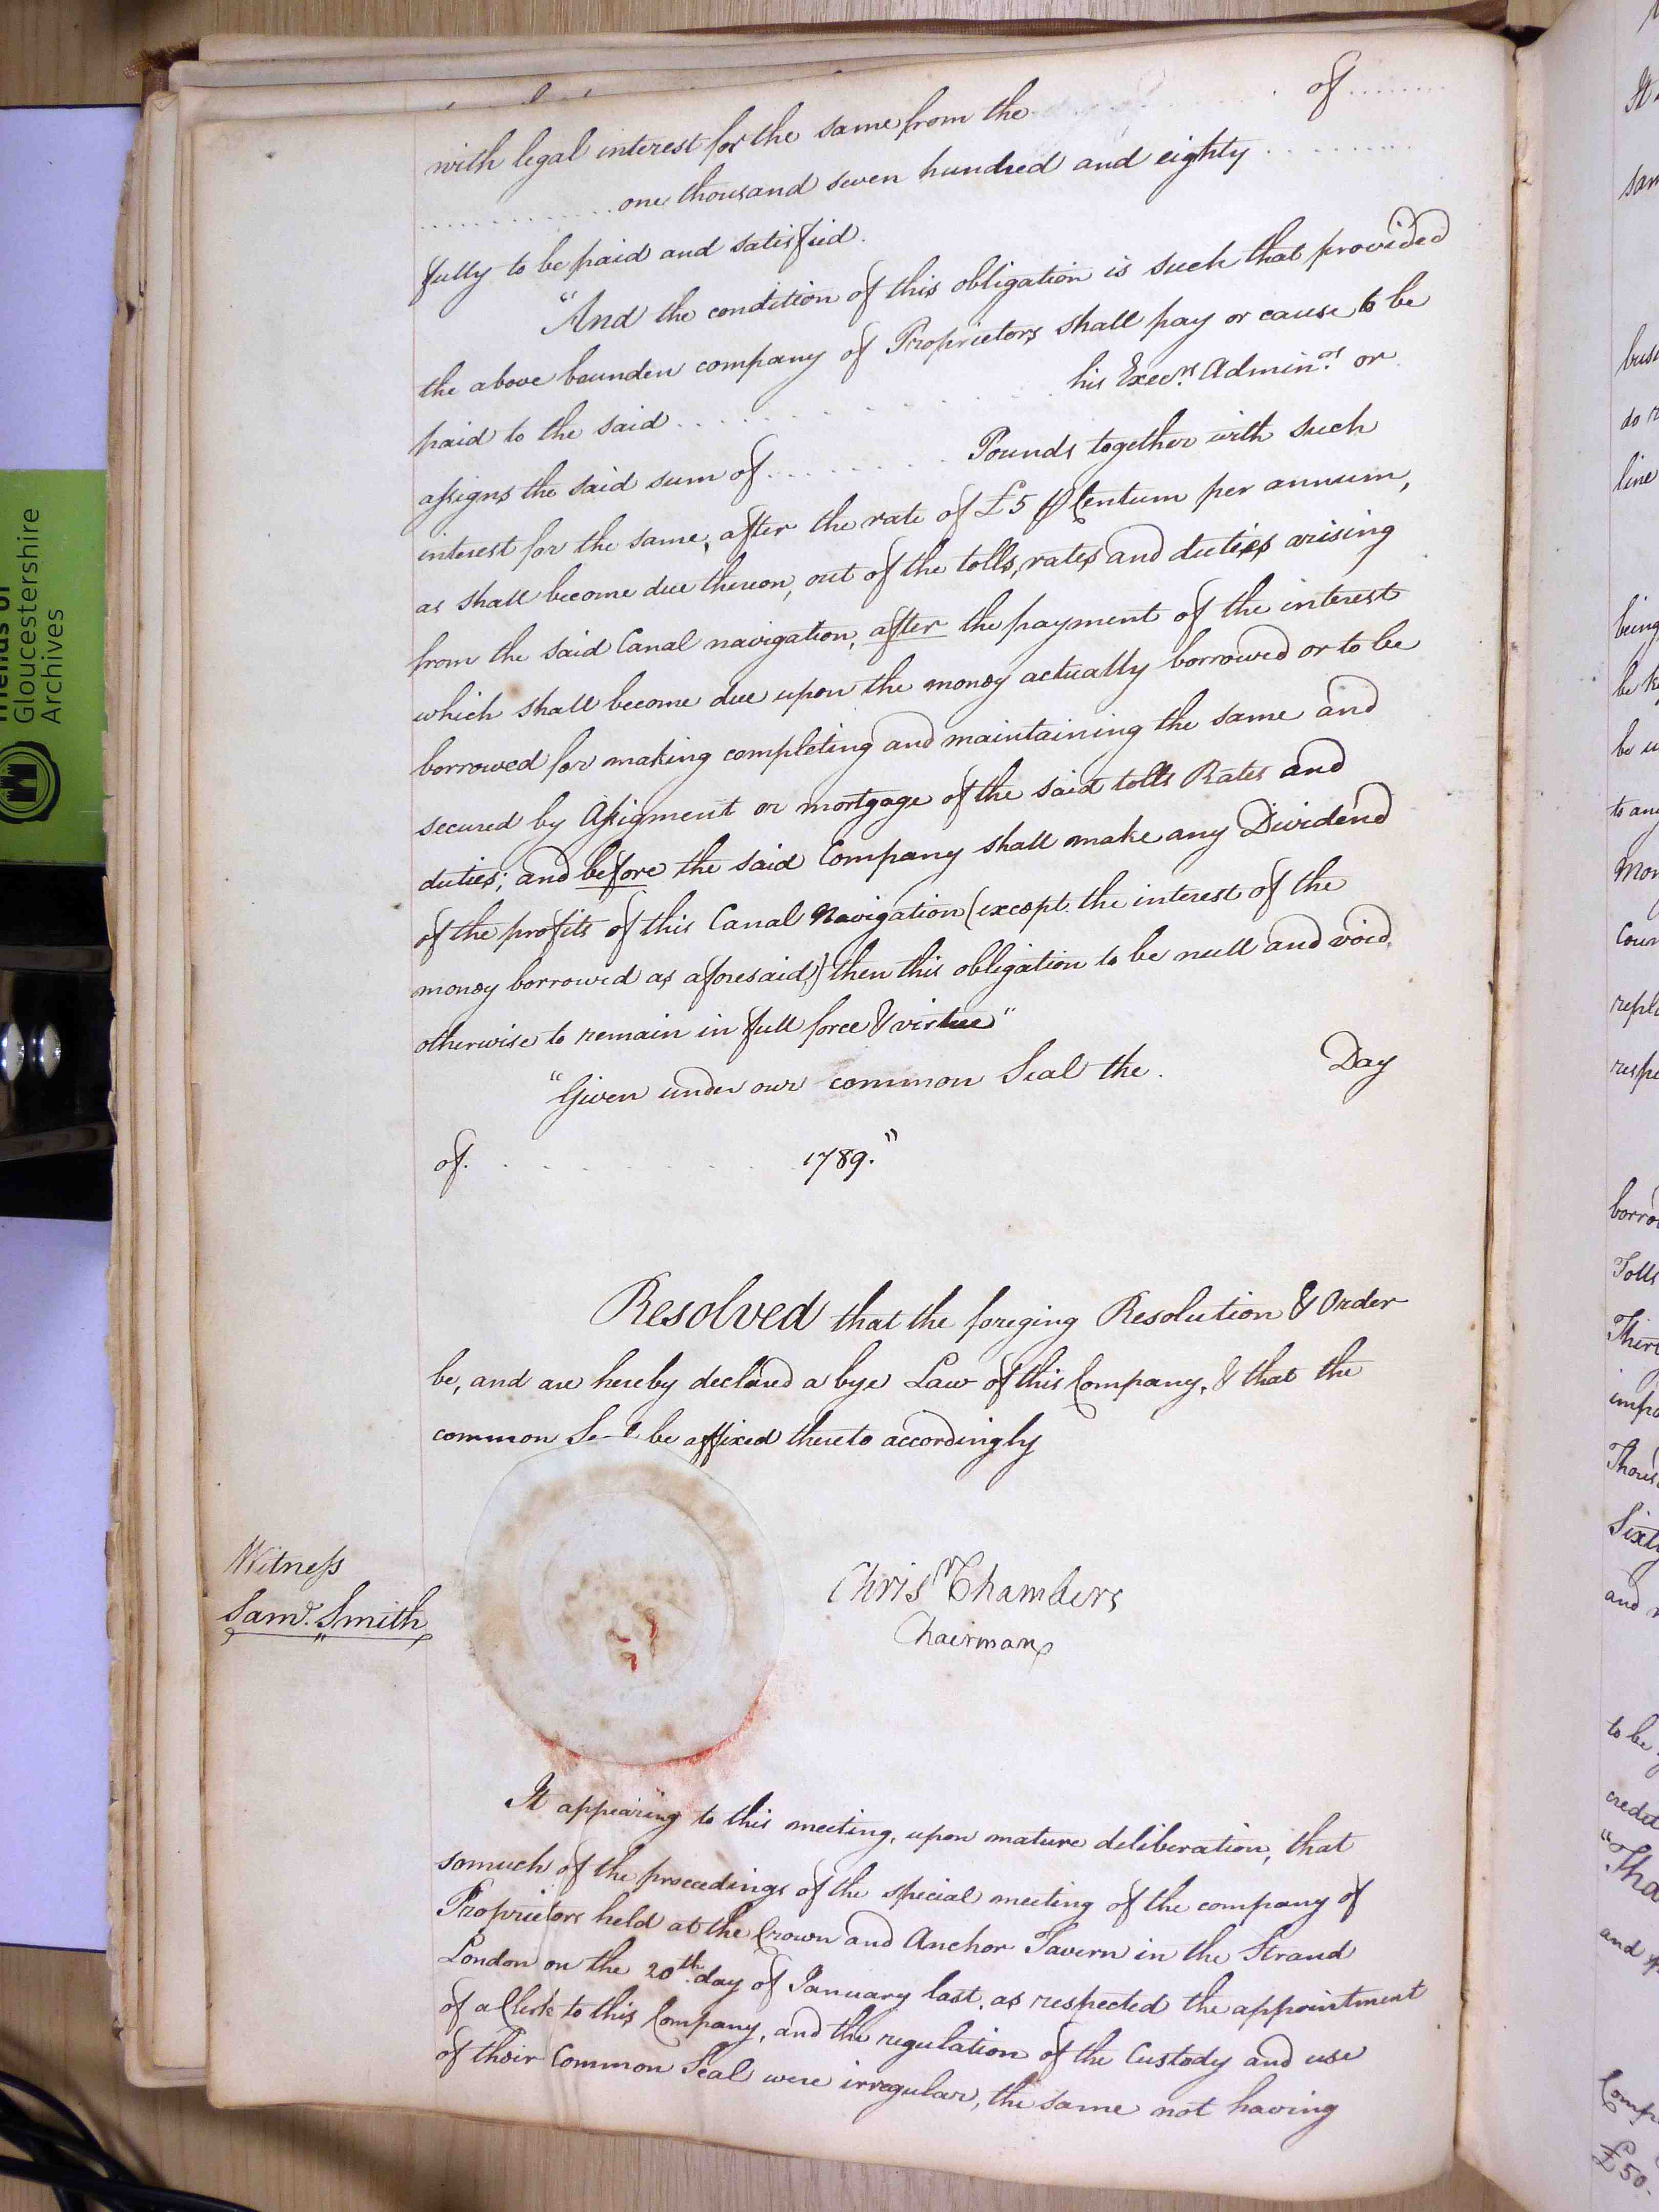 with legal interest for the same from the . . . . . of ........
.............. one thousand seven hundred and eighty ..........
fully to be paid and satisfied.
"And the condition of this obligation is such that provided
the above bounden company of Proprietors shall pay or cause to be
paid to the said . . . . . . . . . . . his Execrs. Adminors. or
assigns the said sum of . . . . . . . Pounds together with such
interest for the same, after the rate of £5 ⅌ Centum per annum,
as shall become due thereon, out of the tolls, rates and duties arising
from the said Canal navigation, after the payment of the interest
which shall become due upon the money actually borrowed or to be
borrowed for making completing and maintaining the same and
secured by Assigment or mortgage of the said tolls Rates and
duties; and before the said Company shall make any Dividend
of the profits of this Canal Navigation (except the interest of the
money borrowed as aforesaid) then this obligation to be null and void,
otherwise to remain in full force & virtue"
"Given under our common Seal the . Day
of. . . . . . . . . . 1789."
Resolved that the foreging Resolution & Order
be, and are hereby declared a bye Law of this Company, & that the
common be affixed thereto accordingly
Witness
Saml. Smith
Chrisr Chambers
Chairman
It appearing to this meeting, upon mature deliberation, that
somuch of the proceedings of the special meeting of the company of
Proprietors held at the Crown and Anchor Tavern in the Strand
London on the 20th. day of January last, as respected the appointment
of a Clerk to this Company, and the regulation of the Custody and use
of their Common Seal were irregular, the same not having
Gloucestershire
Archives
It
do
line
being
be
be
to any
Tolls
and
to be
and
£50.